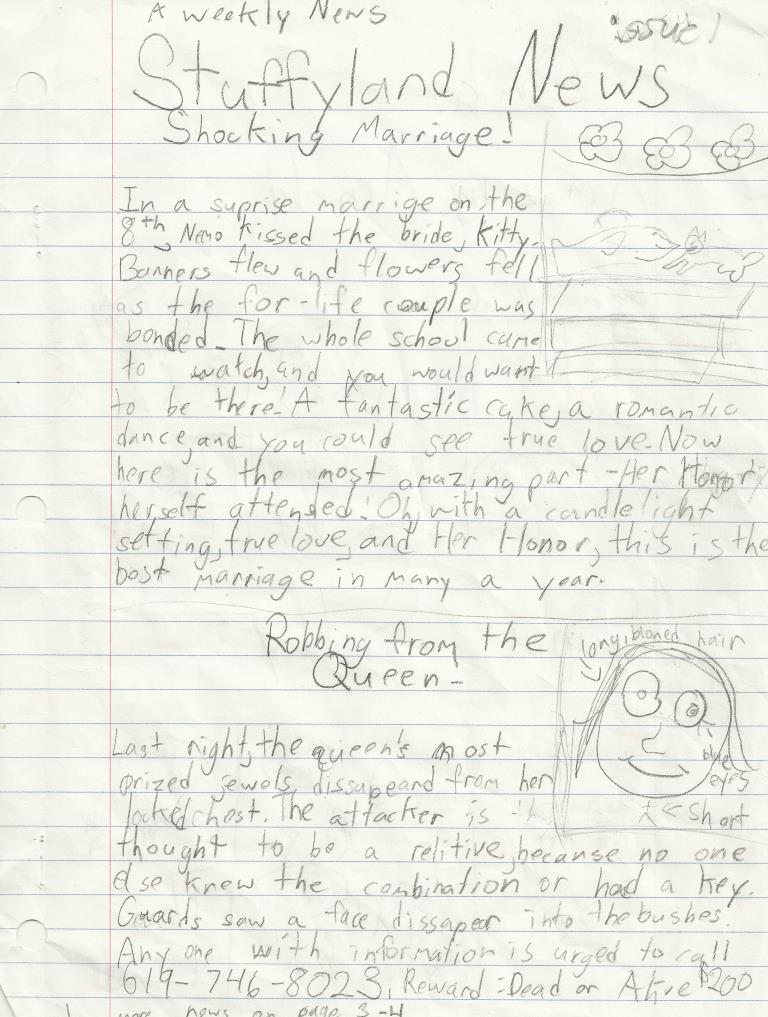 A Weekly News
issue 1
Stuffyland News
Shocking Marriage!
In a suprise marrige on the
8th, Nemo kissed the bride, Kitty.
Banners flew and flowers fell
as the for-life couple was
bonded. The whole school came
to watch, and you would want
to be there! A fantastic cake, a romantic
dance, and you could see true love. Now
here is the most amazing part - Her Honor
herself attended! Oh, with a candle light
setting, true love, and Her Honor, this is the
best marriage in many a year.
Robbing from the
Queen-
long bloned hair
blue
eyes
<- short
Last night, the queen's most
prized jewels dissapeard from her
locked chest. The attacker is
thought to be a relitive, because no one
else knew the combination or had a key.
Guards saw a face dissaper into the bushes.
Any one with information is urged to call
619-746-8023, Reward: Dead or Alive $200
more news on page 3-4